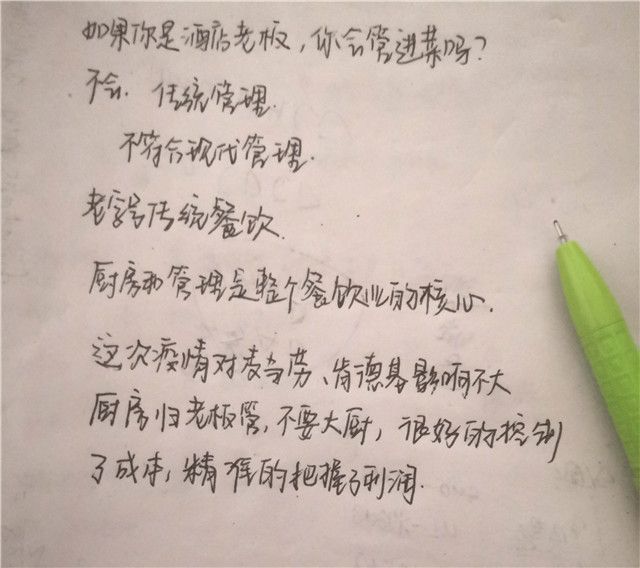 如果你是酒店老板，你会管进菜吗？
不会. 传统管理.
不符合现代管理.
老字号传统餐饮.
厨房和管理是整个餐饮业的核心.
这次疫情对麦当劳、肯德基影响不大
厨房归老板管，不要大厨，很好的控制
了成本，精准的把握了利润.